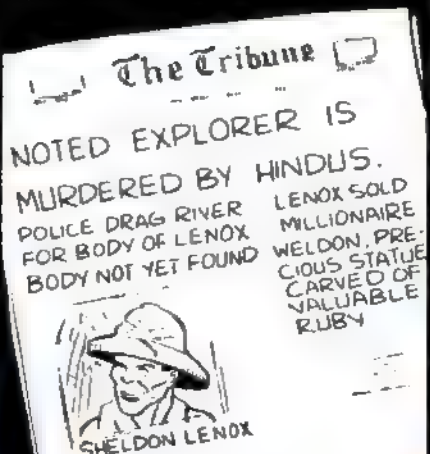 The Tribune
NOTED EXPLORER IS
MURDERED BY HINDUS.
POLICE DRAG RIVER
FOR BODY OF LENOX
BODY NOT YET FOUND
LENOX SOLD
MILLIONAIRE
WELDON, PRE-
CIOUS STATUE
CARVED OF
VALUABLE
RUBY
SHELDON LENOX